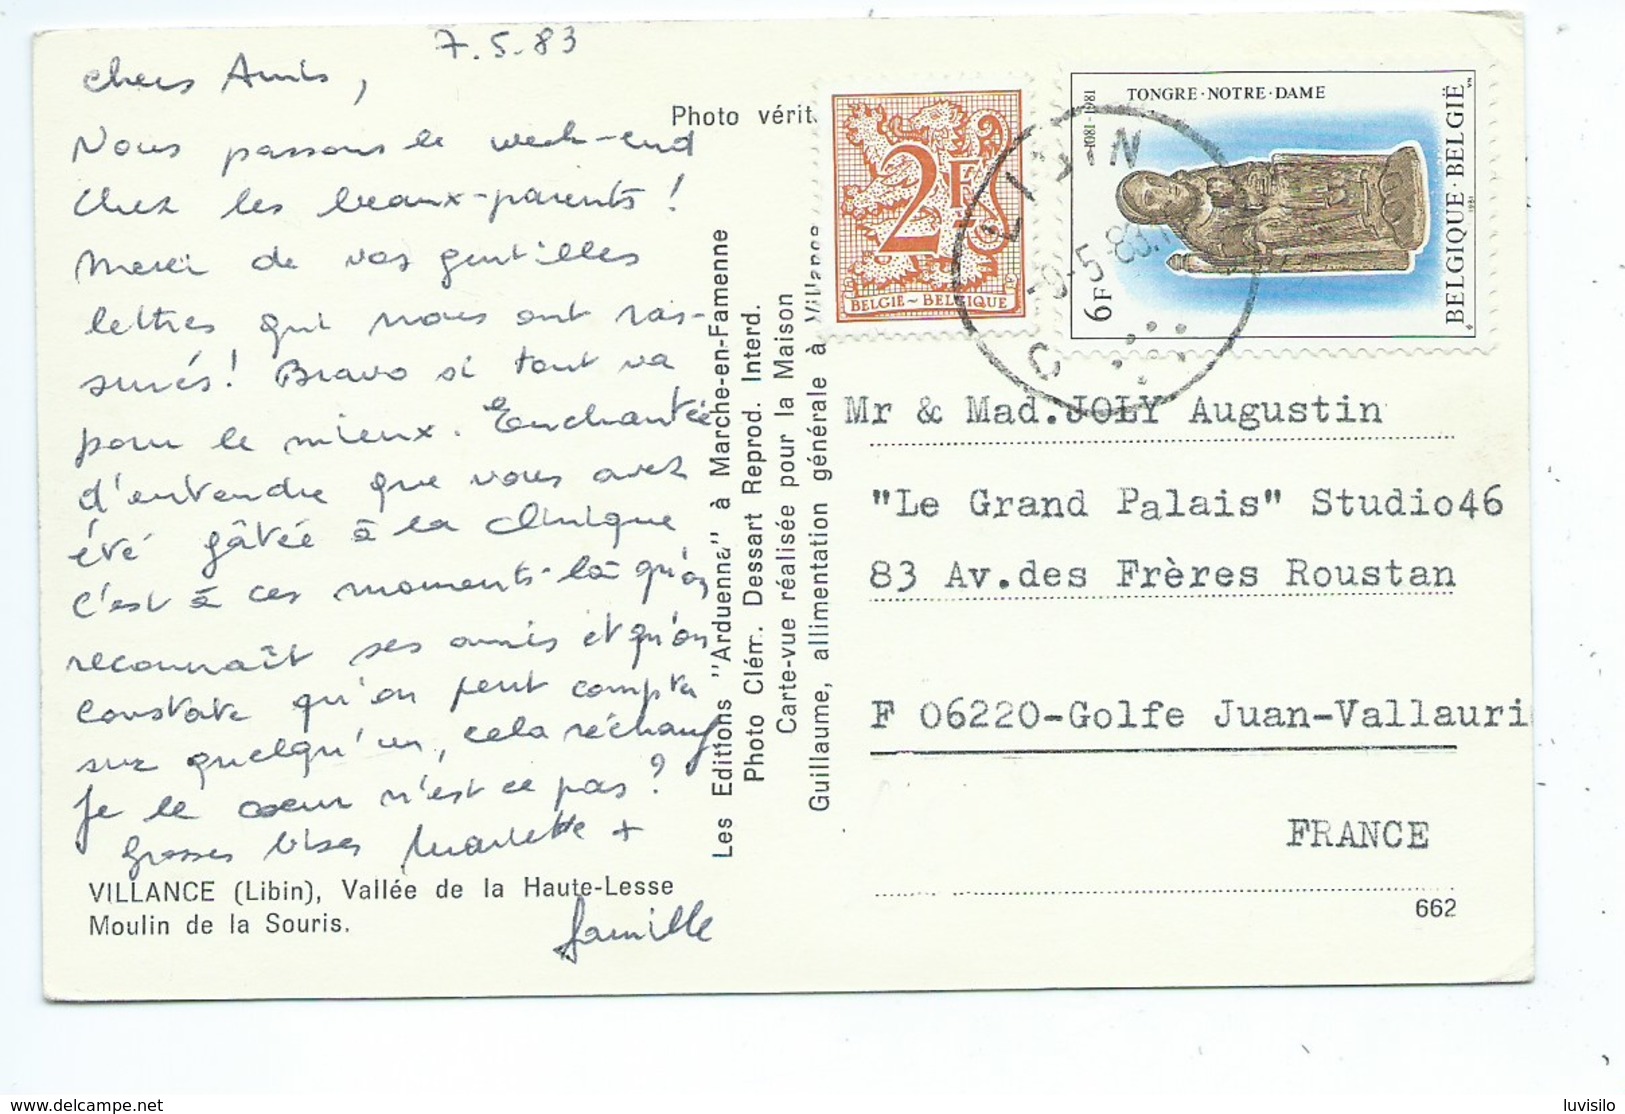 7.5.83
chers Amis,
Nous passons le week-end
chez les beaux-parents !
Merci de vos gentilles
lettres qui nous ont ras-
surés ! Bravo si tout va
pour le mieux. Enchantée
d'entendre que vous avez
été gâtée à la clinique
c'est à ces moments-là qu'on
reconnaît ses amis et qu'on
constate qu'on peut compter
sur quelqu'un, cela réchauf
fe le cœur n'est ce pas ?
Grosses bises Mariette +
famille
VILLANCE (Libin), Vallée de la Haute-Lesse
Moulin de la Souris.
Photo vérit.
Les Editions "Arduenna" à Marche-en-Famenne
Photo Clém. Dessart Reprod. Interd.
Carte-vue réalisée pour la Maison
Guillaume, allimentation générale à Villance
2F
BELGIË~BELGIQUE
TONGRE·NOTRE·DAME
1081-1981
6F
BELGIQUE·BELGIË
1981
LIBIN
-9-5-83
C
Mr & Mad.JOLY Augustin
"Le Grand Palais" Studio46
83 Av.des Frères Roustan
F 06220-Golfe Juan-Vallauri
FRANCE
662
www.delcampe.net
luvisilo